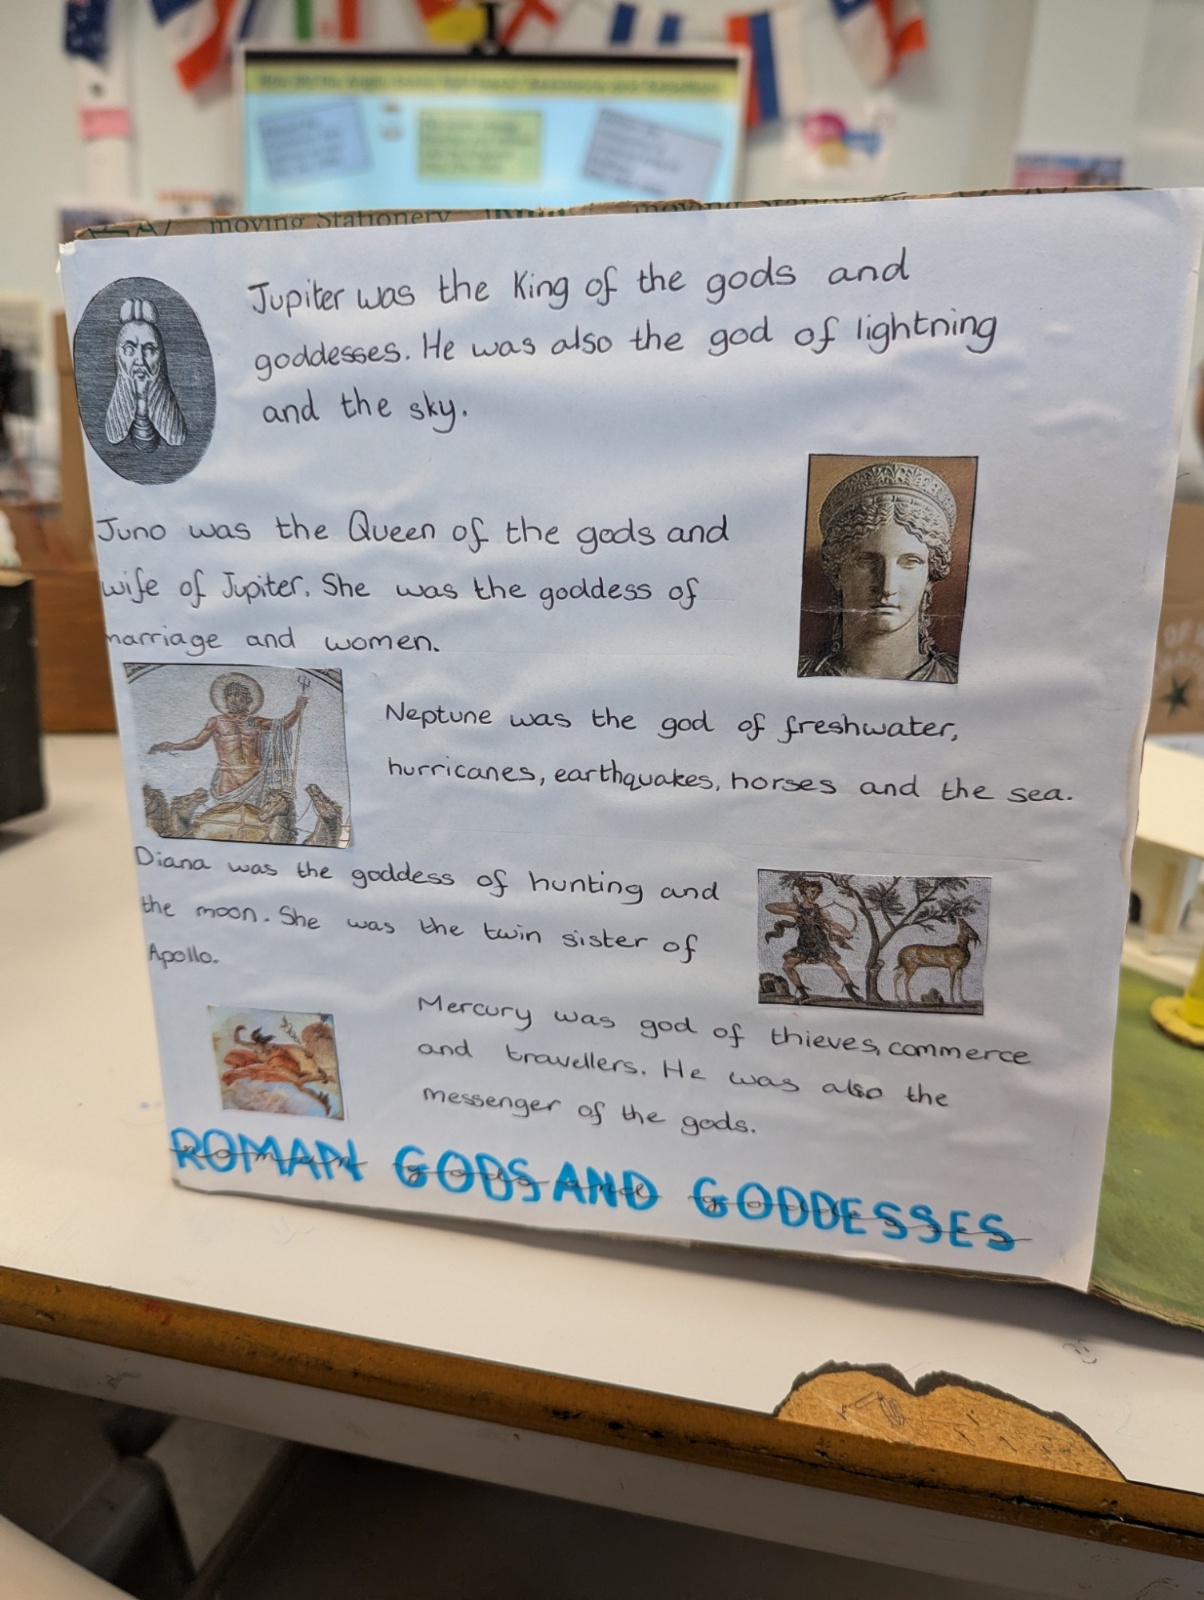 moving Stationery
moving Stationery
Jupiter was the King of the gods and
goddesses. He was also the god of lightning
and the sky.
Juno was the Queen of the gods and
wife of Jupiter. She was the goddess of
marriage and women.
Neptune was the god of freshwater,
hurricanes, earthquakes, horses and the sea.
Diana was the goddess of hunting and
the moon. She was the twin sister of
Apollo.
Mercury was god of thieves, commerce
and travellers. He was also the
messenger of the gods.
ROMAN GODS AND GODDESSES